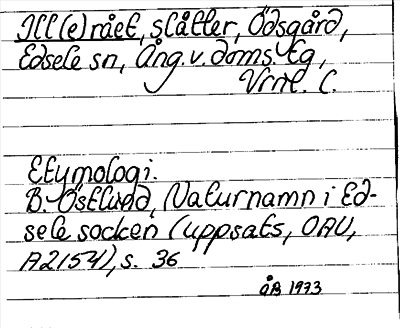 Ill(e)rået, slåtter, Ödsgård,
Edsele sn, Ång. v. doms. Eg,
Vrnl. C.
Etymologi.
B. Östlund, Naturnamn i Ed-
sele socken (uppsats, OAU,
A2154), s. 36
ÅB 1973